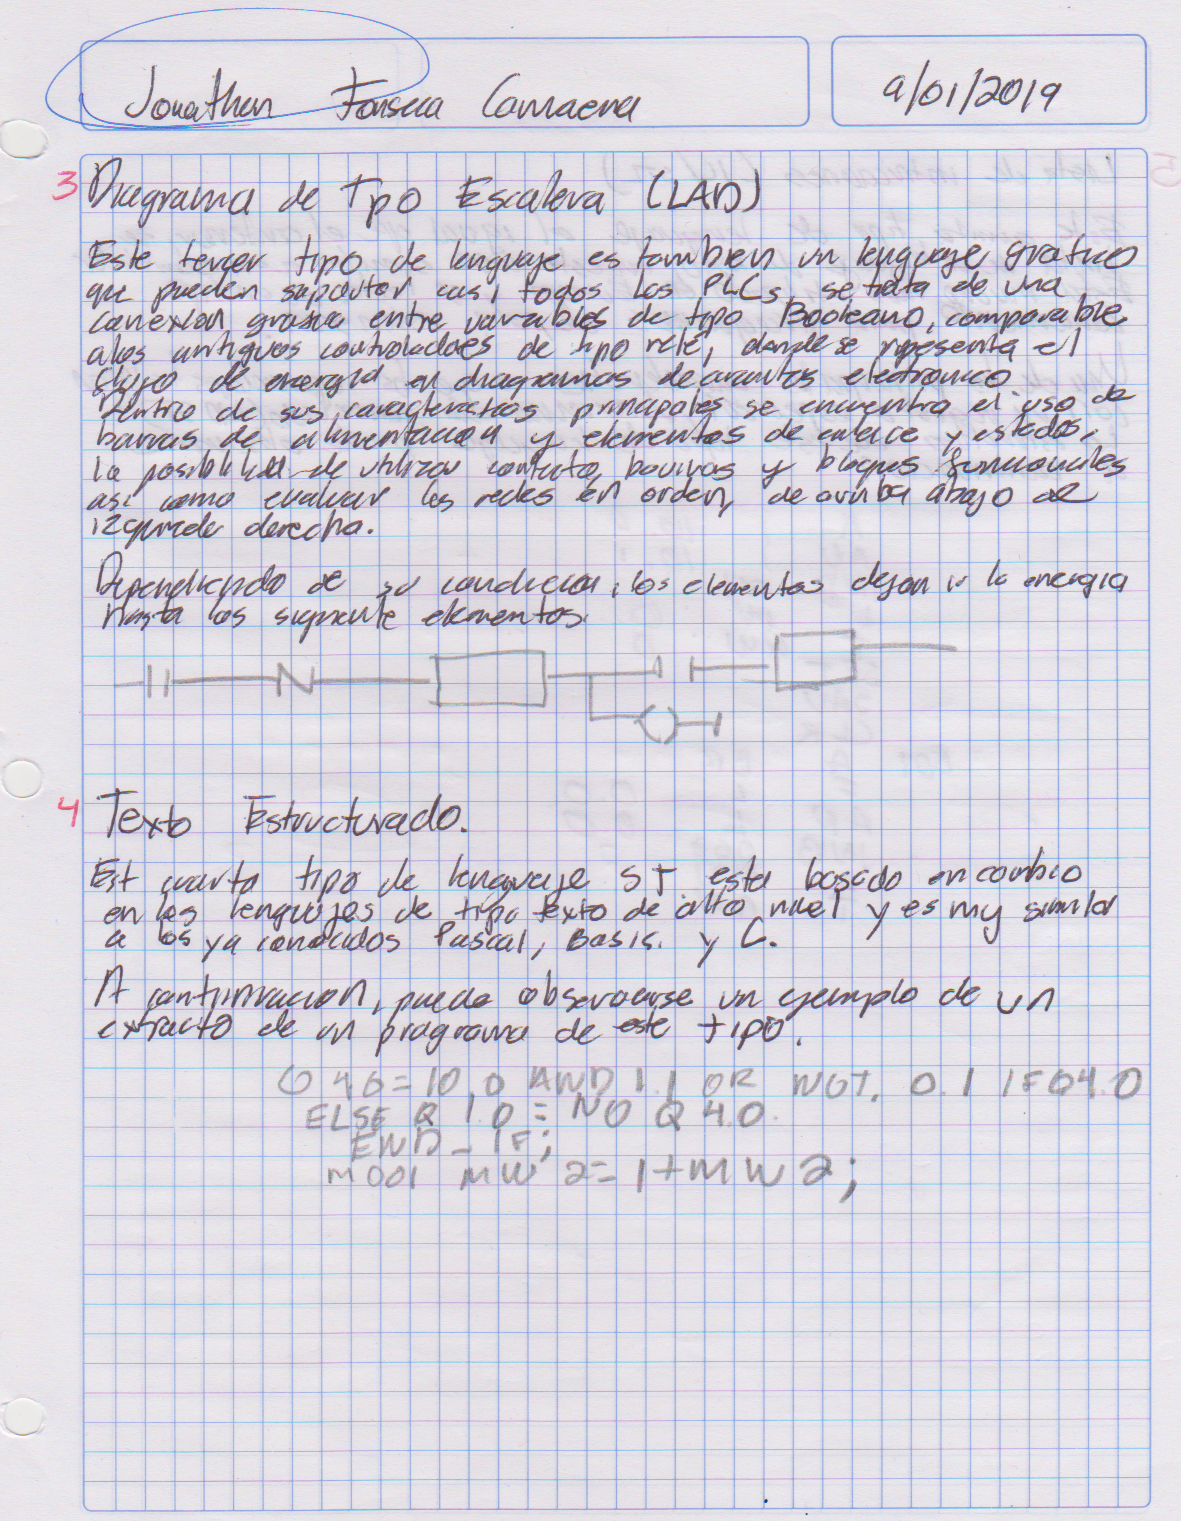 Jonathan Fonseca Camarena
9/01/2019
3 Diagrama de Tipo Escalera (LAD)
Este tercer tipo de lenguaje es tambien un lenguaje grafico
que pueden soportar casi todos los PLCs, se trata de una
conexion grafica entre variables de tipo Booleano, comparable
a los antiguos controladores de tipo relé, donde se representa el
flujo de energia en diagramas de circuitos electronico
Dentro de sus caracteristicas principales se encuentra el uso de
barras de alimentacion y elementos de enlace y estados,
la posibilidad de utilizar contacto, bovinas y bloques funcionales
asi como evaluar las redes en orden, de arriba abajo de
izquierda derecha.
Dependiendo de su condicion, los elementos dejan ir la energia
hasta los siguiente elementos.
4 Texto Estructurado.
Est cuarto tipo de lenguaje ST esta basado en cambio
en los lenguajes de tipo texto de alto nivel y es my similar
a los ya conocidos Pascal, Basis. y C.
A continuacion, puede observarse un ejemplo de un
extracto de un programa de este tipo.
Q 4.0 = I0.0 AND I.1 OR NOT. 0.1 IF Q4.0
ELSE Q 1.0 = NO Q 4.0.
END_IF;
M001 MW 2 = 1+MW2;